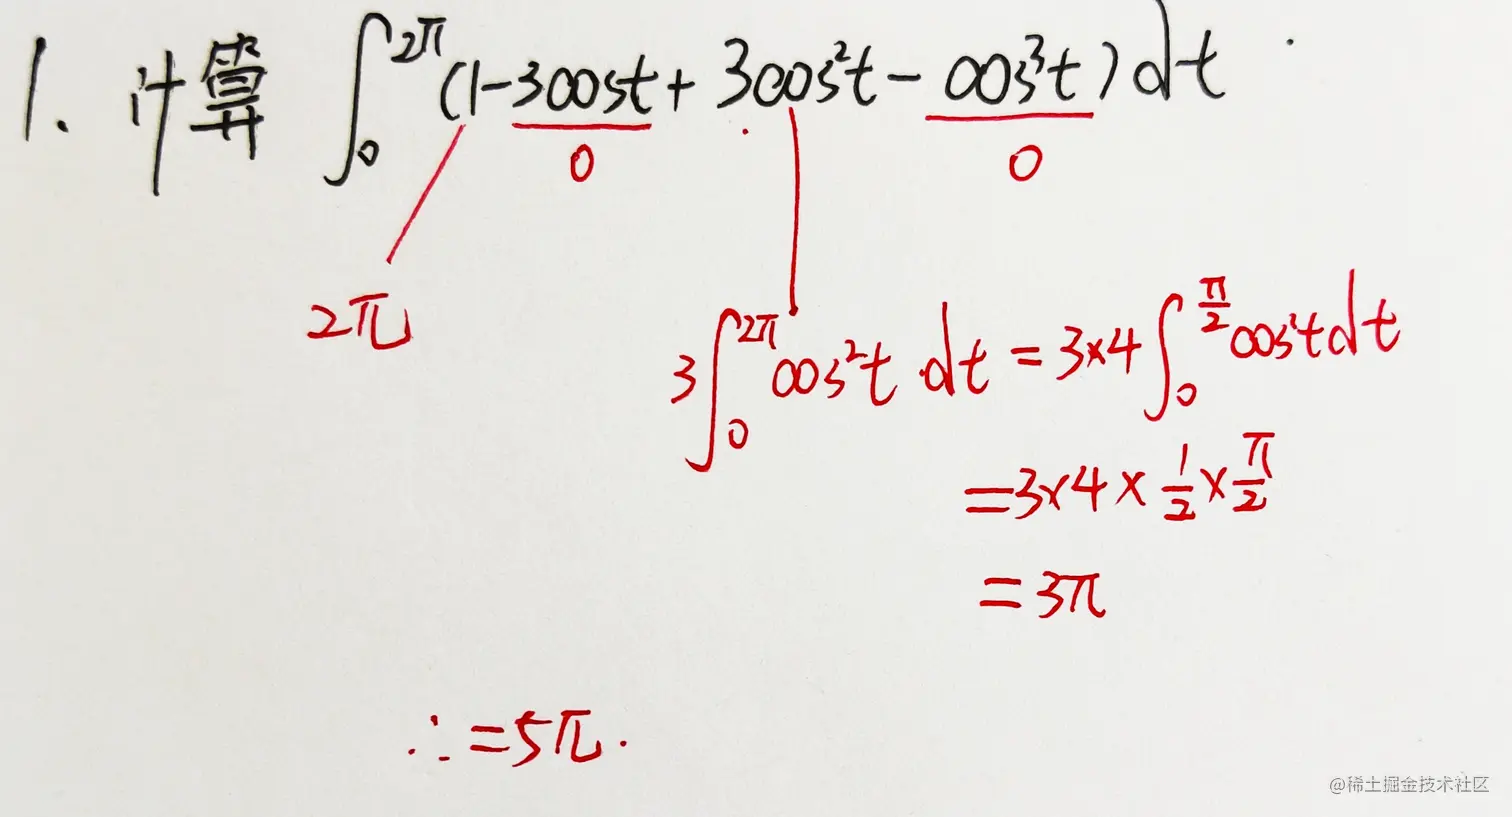 1. 计算 ∫₀^{2π} (1-3cost+3cos²t-cos³t)dt
0 0
2π
3∫₀^{2π} cos²t·dt = 3×4∫₀^{π/2} cos²tdt
=3×4×1/2×π/2
=3π
∴=5π.
@稀土掘金技术社区